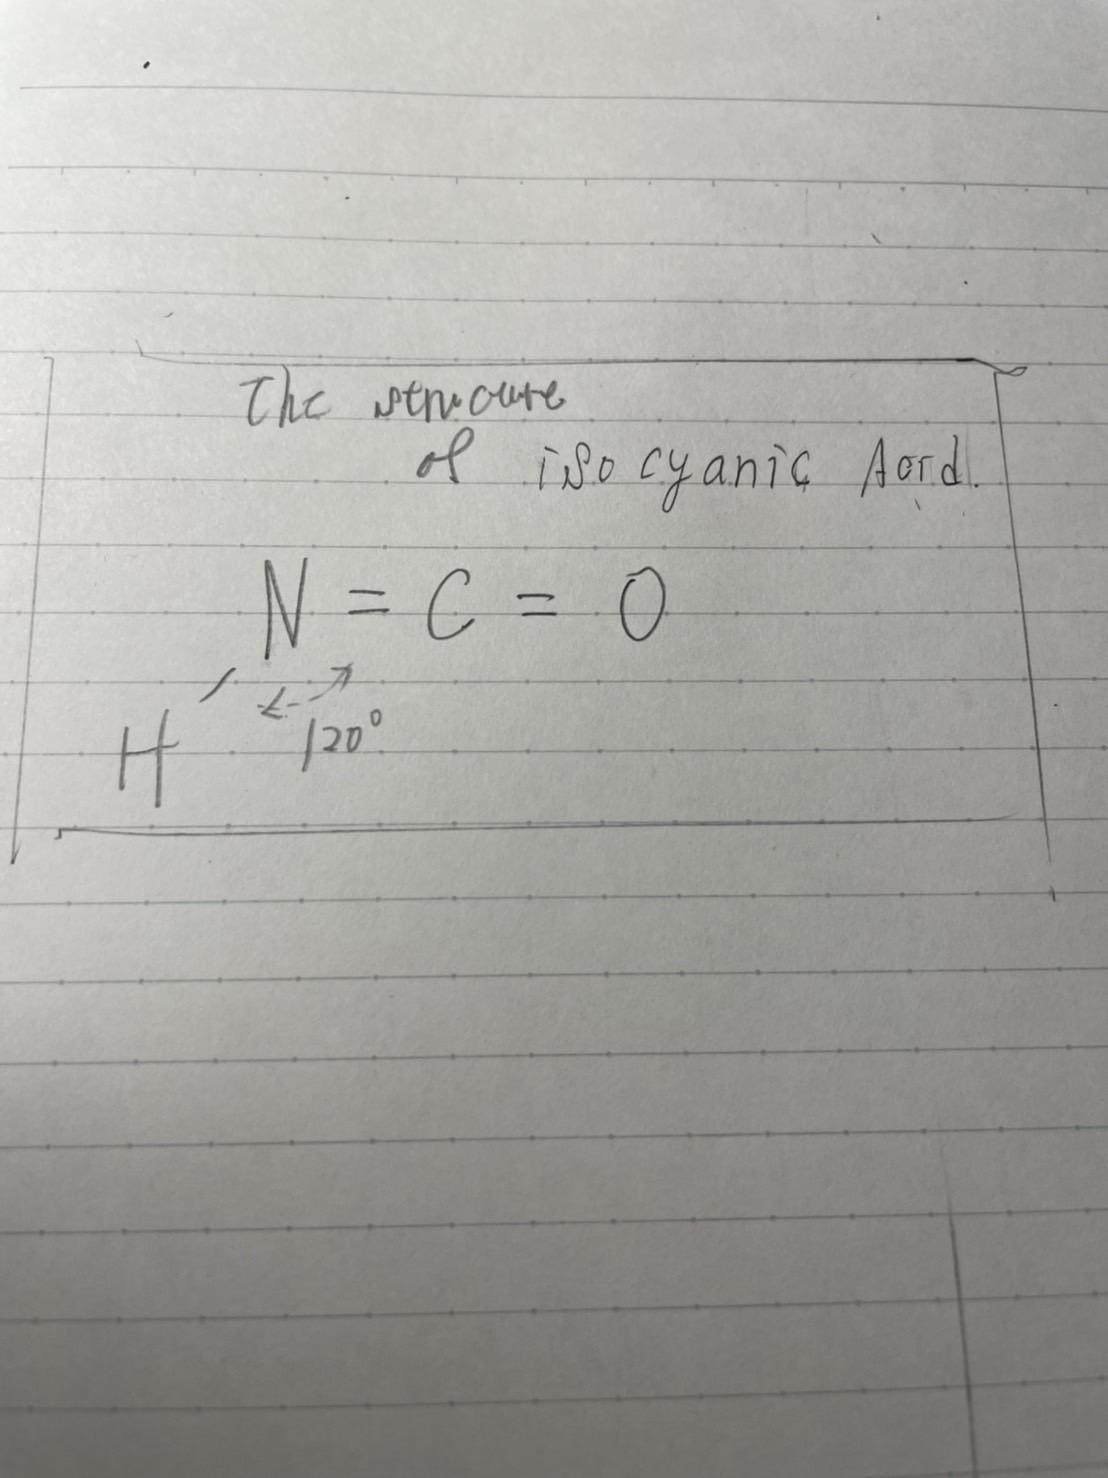 The strucure
of isocyanic Acid.
N = C = O
H
120°